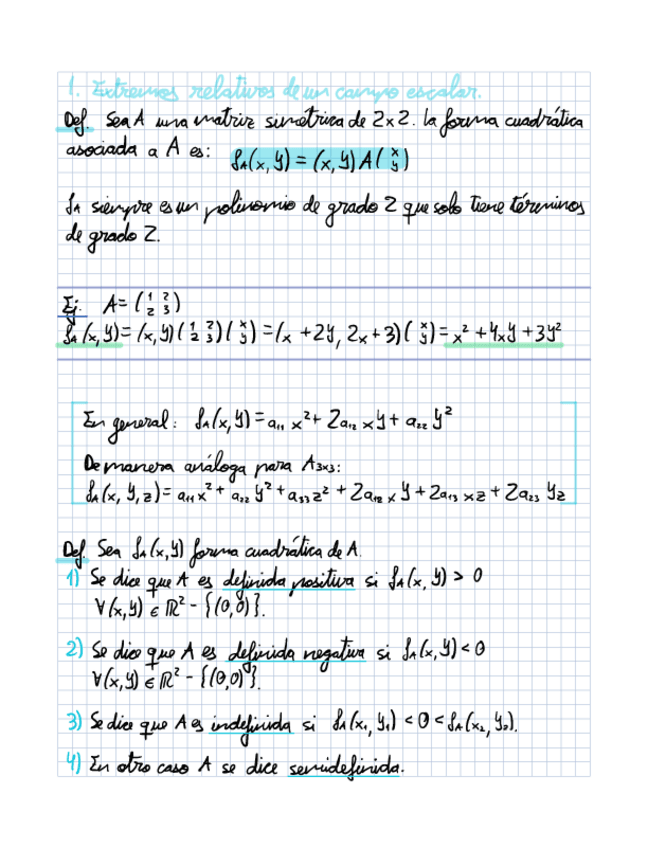 1. Extremos relativos de un campo escalar.
Def. Sea A una matriz simétrica de 2x2. la forma cuadrática
asociada a A es: f_A(x, y) = (x, y) A (x y)
f_A siempre es un polinomio de grado 2 que solo tiene términos
de grado 2.
Ej. A = (1 2 2 3)
f_A (x, y) = (x, y) (1 2 2 3) (x y) = (x + 2y, 2x + 3) (x y) = x² + 4xy + 3y²
En general: f_A(x, y) = a₁₁ x² + 2a₁₂ xy + a₂₂ y²
De manera análoga para A₃ₓ₃:
f_A(x, y, z) = a₁₁x² + a₂₂ y² + a₃₃ z² + 2a₁₂ x y + 2a₁₃ xz + 2a₂₃ yz
Def. Sea f_A(x, y) forma cuadrática de A.
1) Se dice que A es definida positiva si f_A(x, y) > 0
∀(x, y) ∈ ℝ² - {(0,0)}.
2) Se dice que A es definida negativa si f_A(x, y) < 0
∀(x, y) ∈ ℝ² - {(0,0)}.
3) Se dice que A es indefinida si f_A(x₁, y₁) < 0 < f_A(x₂, y₂).
4) En otro caso A se dice semidefinida.